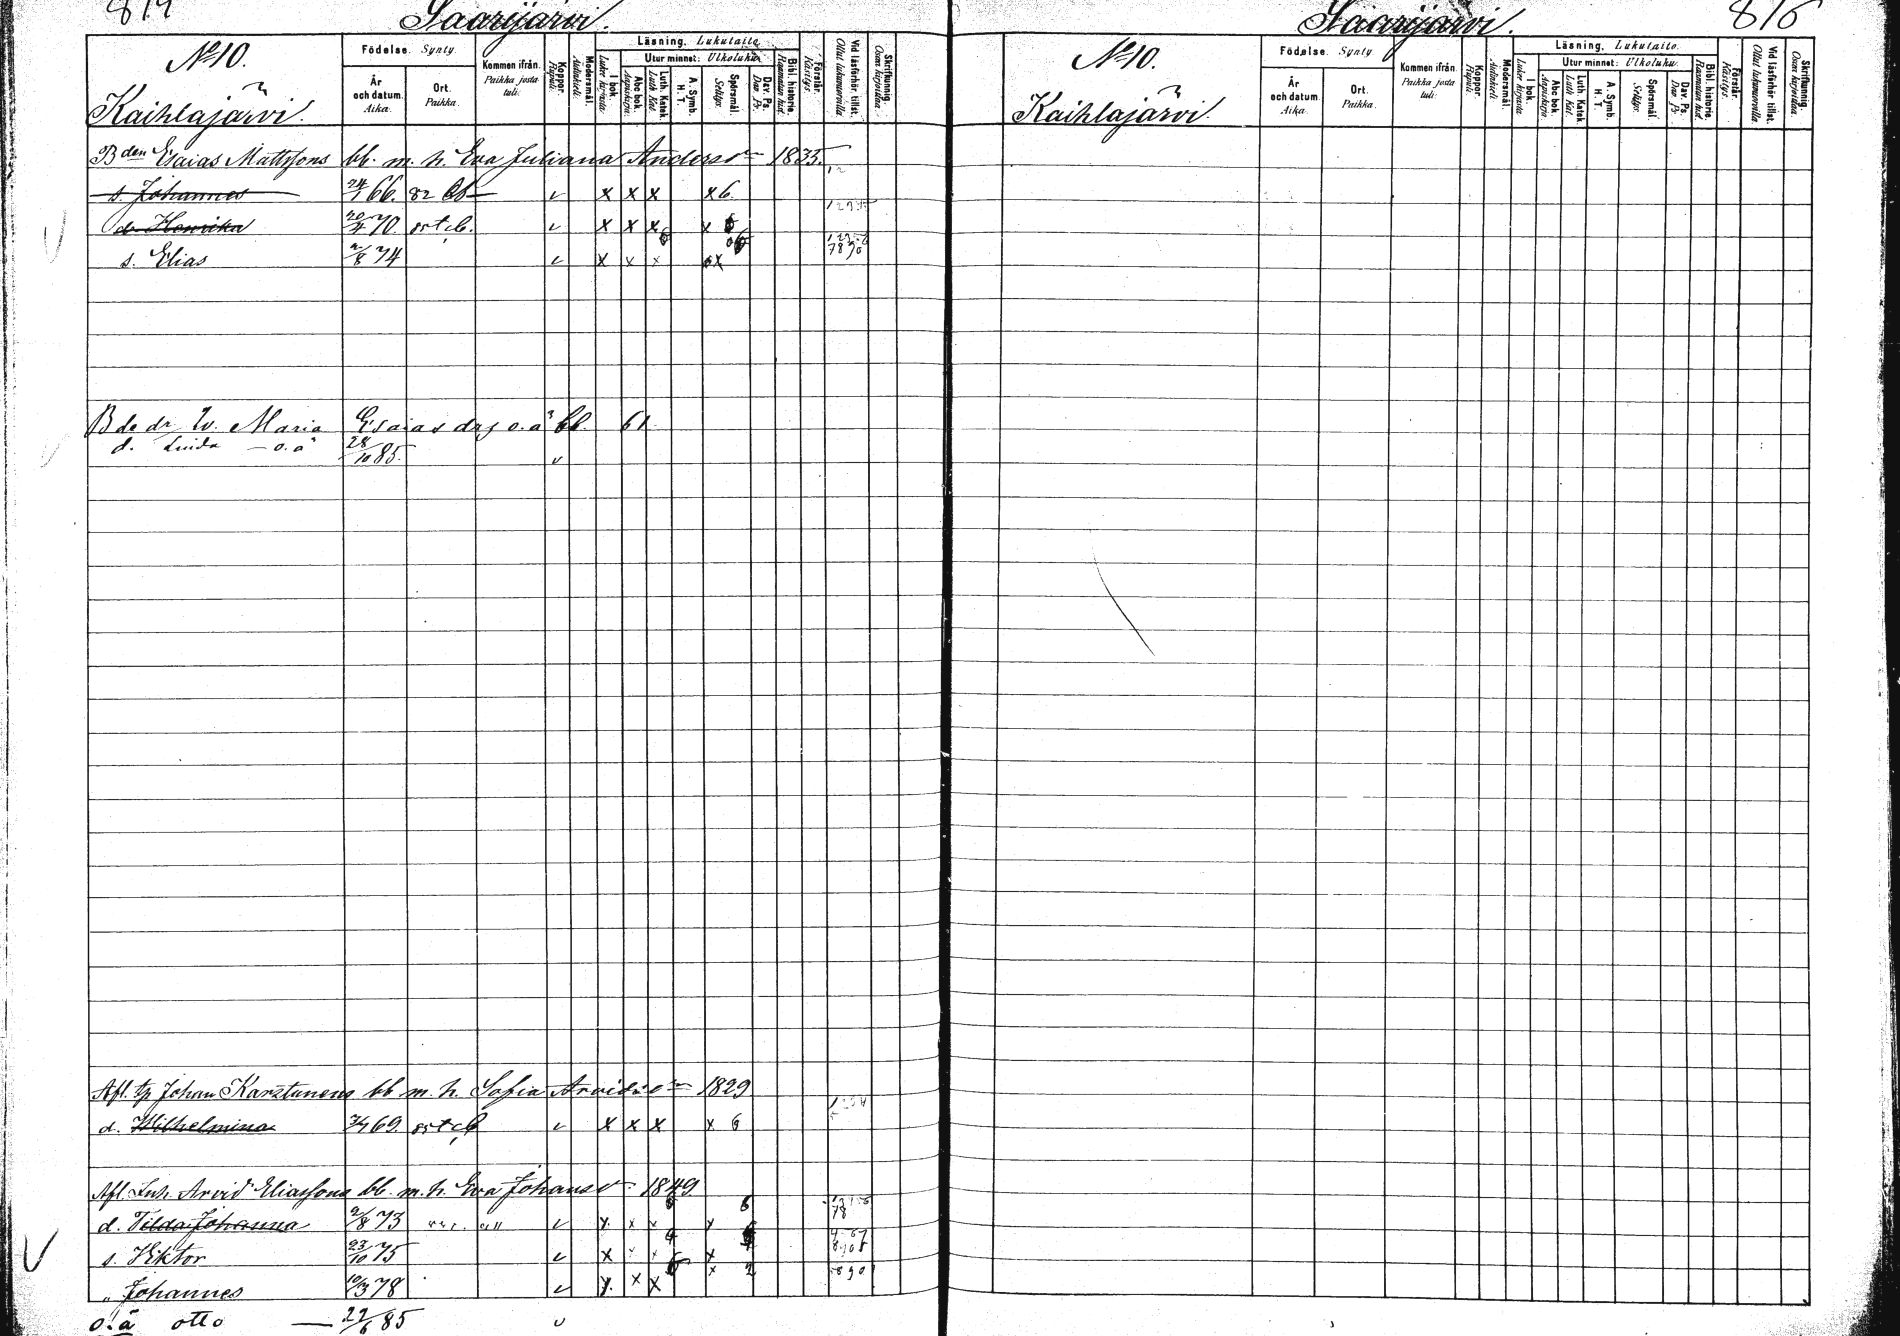 Saarijärvi.
№10.
Kaihlajärvi.
Födelse. Synty.
År och datum. Aika.
Ort. Paikka.
Kommen ifrån. Paikka josta tuli.
Koppor. Rupuli.
Modersmål. Äidinkieli.
Läsning. Lukutaito.
I bok. Luker kirjasta
Utur minnet: Ulkoluku.
Abc bok. Aapiskirja.
Luth. Katek. Luth. Kat.
A. Symb. H. T.
Spörsmål. Selitys.
Dav. Ps. Dav. Ps.
Bibl. historie. Raamatun hist.
Förstår. Käsitys.
Vid läsförhör tillst. Ollut lukukuvoilla.
Skrifkunnig. Osaa kirjoittaa.
Bden Esaias Mattssons bb. m. h. Eva Juliana Andersdr 1835.
s. Johannes 24/1 66. 82 v x x x x 6
d. Henrika 20/4 70. v x x x x 6
s. Elias 2/8 74 v x x x x
Bde dr Ew. Maria Esaias drs o.ä bb. 61
d. Linda — o.ä 28/10 85. v
Afl. tp Johan Karstunens bb m. h. Sofia Arvidsdr 1829
d. Wilhelmina 7/4 69. v x x x x 6
Afl. Inh. Arvid Eliassons bb. m. h. Eva Johansdr 1849
d. Tilda Johanna 2/8 73 v x x x x
s. Viktor 23/10 75 v x x x x
" Johannes 10/3 78 v x x x x 2
o.ä otto — 22/6 85 v
Saarijärvi.
816
№10.
Kaihlajärvi.
Födelse. Synty.
År och datum. Aika.
Ort. Paikka.
Kommen ifrån. Paikka josta tuli.
Koppor. Rupuli.
Modersmål. Äidinkieli.
Läsning. Lukutaito.
I bok. Luker kirjasta
Utur minnet: Ulkoluku.
Abc bok. Aapiskirja.
Luth. Katek. Luth. Kat.
A. Symb. H. T.
Spörsmål. Selitys.
Dav. Ps. Dav. Ps.
Bibl. historie. Raamatun hist.
Förstår. Käsitys.
Vid läsförhör tillst. Ollut lukukuvoilla.
Skrifkunnig. Osaa kirjoittaa.